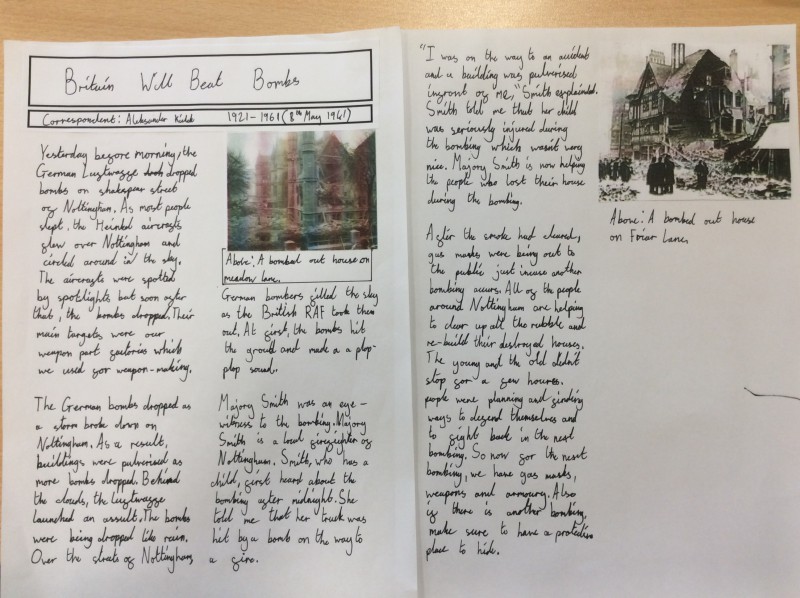 Britain Will Beat Bombs
Correspondent: Aleksander
1921-1961 (8th May 1941)
Yesterday before morning, the
German Luftwaffe dropped
bombs on shakespear street
of Nottingham. As most people
slept, the Heinkel aircrafts
flew over Nottingham and
circled around in the sky.
The aircrafts were spotted
by spotlights but soon after
that, the bombs dropped. Their
main targets were our
weapon part factories which
we used for weapon-making.
The German bombs dropped as
a storm broke down on
Nottingham. As a result,
buildings were pulverised as
more bombs dropped. Behind
the clouds, the Luftwaffe
launched an assult. The bombs
were being dropped like rain.
Over the strats of Nottingham,
Above: A bombed out house on
meadow lane.
German bombers filled the sky
as the British RAF took them
out. At first, the bombs hit
the ground and made a a plop-
plop sound.
Majory Smith was an eye-
witness to the bombing. Majory
Smith is a local firefighter of
Nottingham. Smith, who has a
child, first heard about the
bombing after midnight. She
told me that her truck was
hit by a bomb on the way to
a fire.
"I was on the way to an accident
and a building was pulverised
infront of me," Smith explainted.
Smith told me that her child
was seriously injured during
the bombing which wasnt very
nice. Majory Smith is now helping
the people who lost their house
during the bombing.
Above: A bombed out house
on Friar Lane.
After the smoke had cleared,
gas masks were being out to
the public just incase another
bombing accurs. All of the people
around Nottingham are helping
to clear up all the rubble and
re-build their destroyed houses.
The young and the old didn't
stop for a few houres.
people were planning and finding
ways to defend themselves and
to fight back in the next
bombing. So now for the next
bombing, we have gas masks,
weapons and armoury. Also
if there is another bombing,
make sure to have a
place to hide.